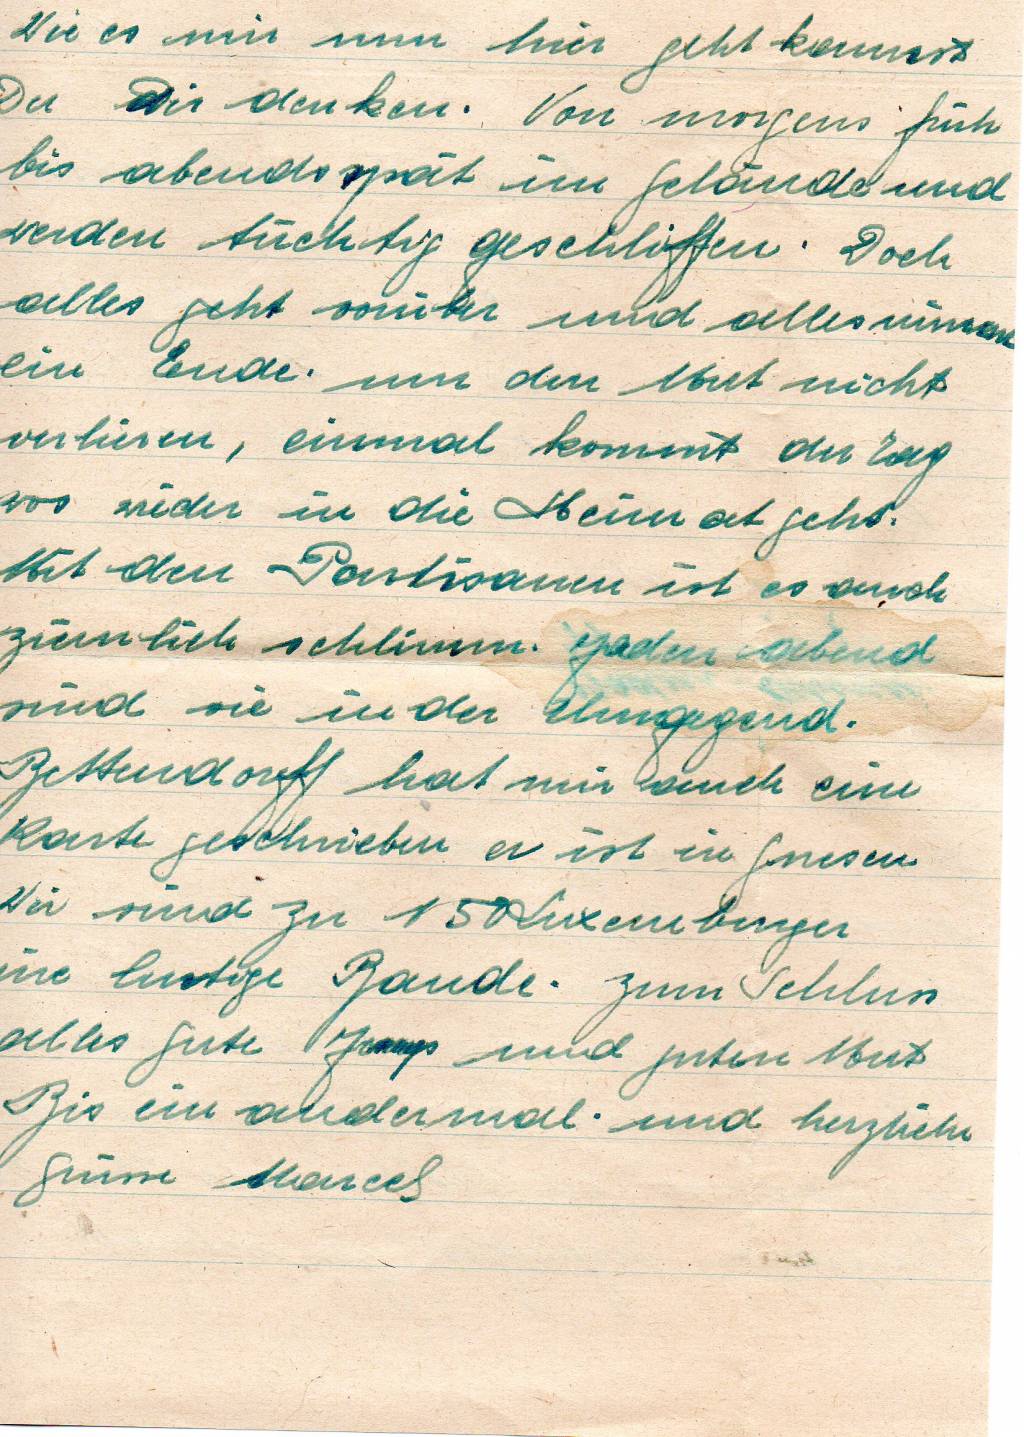 Wie es mir nun hier geht kannst
Du Dir denken. Von morgens früh
bis abends spät im Gelände und
werden tüchtig geschliffen. Doch
alles geht vorüber und alles nimmt
ein Ende. nur den Mut nicht
verlieren, einmal kommt der Tag
wos wieder in die Heimat geht.
Mit den Partisanen ist es auch
ziemlich schlimm. Jeden abend
sind sie in der Umgegend.
Bettendorff hat mir auch eine
Karte geschrieben er ist in Gnesen
Wir sind zu 150 Luxemburger
ine lustige Bande. Zum Schluss
alles gute und guten Mut
Bis ein andermal. und herzliche
Grüsse Marcel